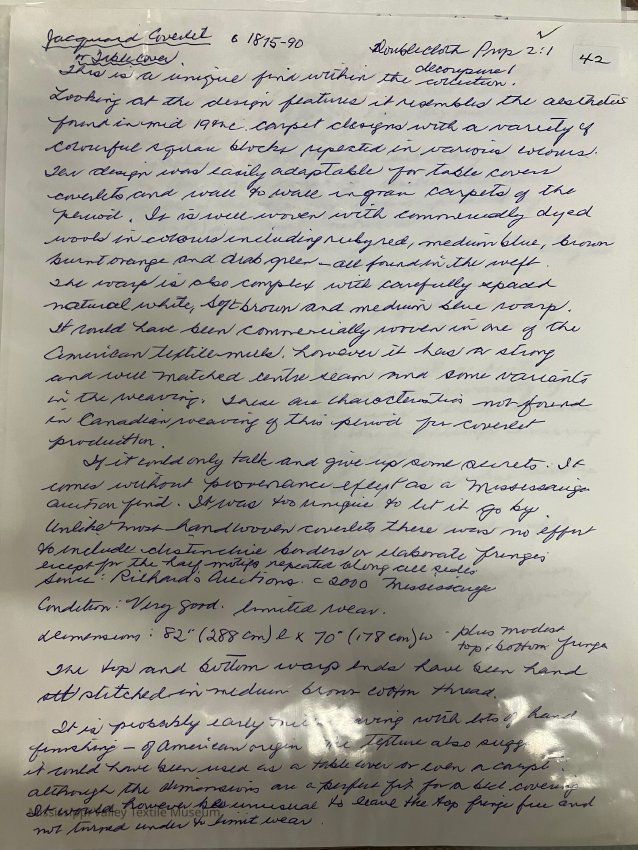 Jacquard Coverlet c 1875-90 Doublecloth Prop 2:1 42
or Tablecover
This is a unique find within the decoupure! collection.
Looking at the design features it resembles the aesthetics
found in mid 19th c. carpet designs with a variety of
colourful square blocks repeated in various colours.
The design was easily adaptable for table covers
coverlets and wall to wall ingrain carpets of the
period. It is well woven with commercially dyed
wools in colours including ruby red, medium blue, brown
burnt orange and drab green – all found in the weft.
The warp is also complex with carefully spaced
natural white, soft brown and medium blue warp.
It could have been commercially woven in one of the
American textile mills. however it has a strong
and well matched centre seam and some variants
in the weaving. These are characteristics not found
in Canadian weaving of this period for coverlet
production.
If it could only talk and give up some secrets. It
comes without provenance except as a Mississauga
auction find. It was too unique to let it go by.
Unlike most handwoven coverlets there was no effort
to include distinctive borders or elaborate fringes
except for the half motifs repeated along all sides.
Source: Richards Auctions. c 2000 Mississauga
Condition: Very good. limited wear.
dimensions: 82" (288 cm) l x 70" (178 cm) w - plus modest
top & bottom fringe
The top and bottom warp ends have been hand
stitched in medium brown cotton thread.
It is probably early with lots of hand
finishing – of American origin The texture also
it could have been used as a table cover or even a carpet.
although the dimensions are a perfect fit for a bed covering
It would however be unusual to leave the top fringe free and
not turned under to limit wear.
Mississippi Valley Textile Museum